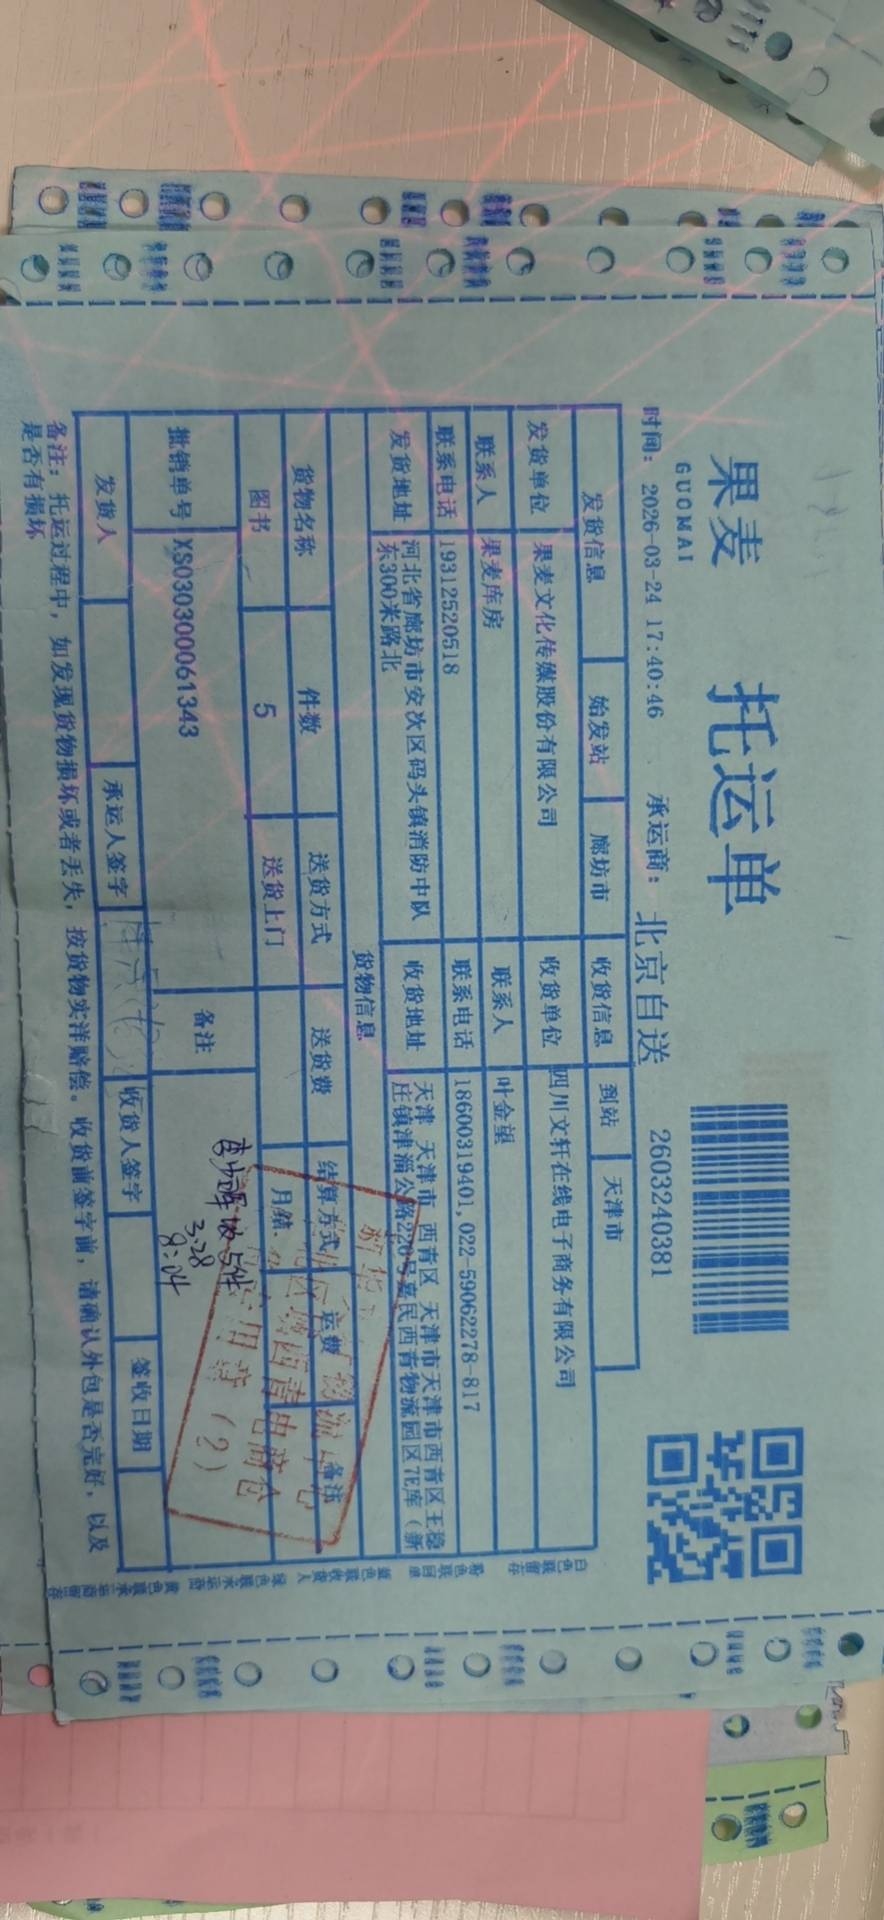 果麦
GUOMAI
托运单
时间：2026-03-24 17:40:46 承运商：北京自送 2603240381
发货信息 始发站 廊坊市 收货信息 到站 天津市
发货单位 果麦文化传媒股份有限公司 收货单位 四川文轩在线电子商务有限公司
联系人 果麦库房 联系人 叶金望
联系电话 19312520518 联系电话 18600319401,022-59062278-817
发货地址 河北省廊坊市安次区码头镇消防中队东300米路北 收货地址 天津 天津市 西青区 天津市天津市西青区王稳庄镇津淄公路220号嘉民西青物流园区7E库（新
货物信息
货物名称 件数 送货方式 送货费 结算方式 运费 备注
图书 5 送货上门 月结
批销单号 XS030300061343 备注
3.28
8:04
发货人 承运人签字 收货人签字 签收日期
备注：托运过程中，如发现货物损坏或者丢失，按货物实洋赔偿。收货前签字前，请确认外包是否完好，以及
是否有损坏
白色联留存 粉色联回单 蓝色联收货人 绿色联承运商 黄色联承运商留存